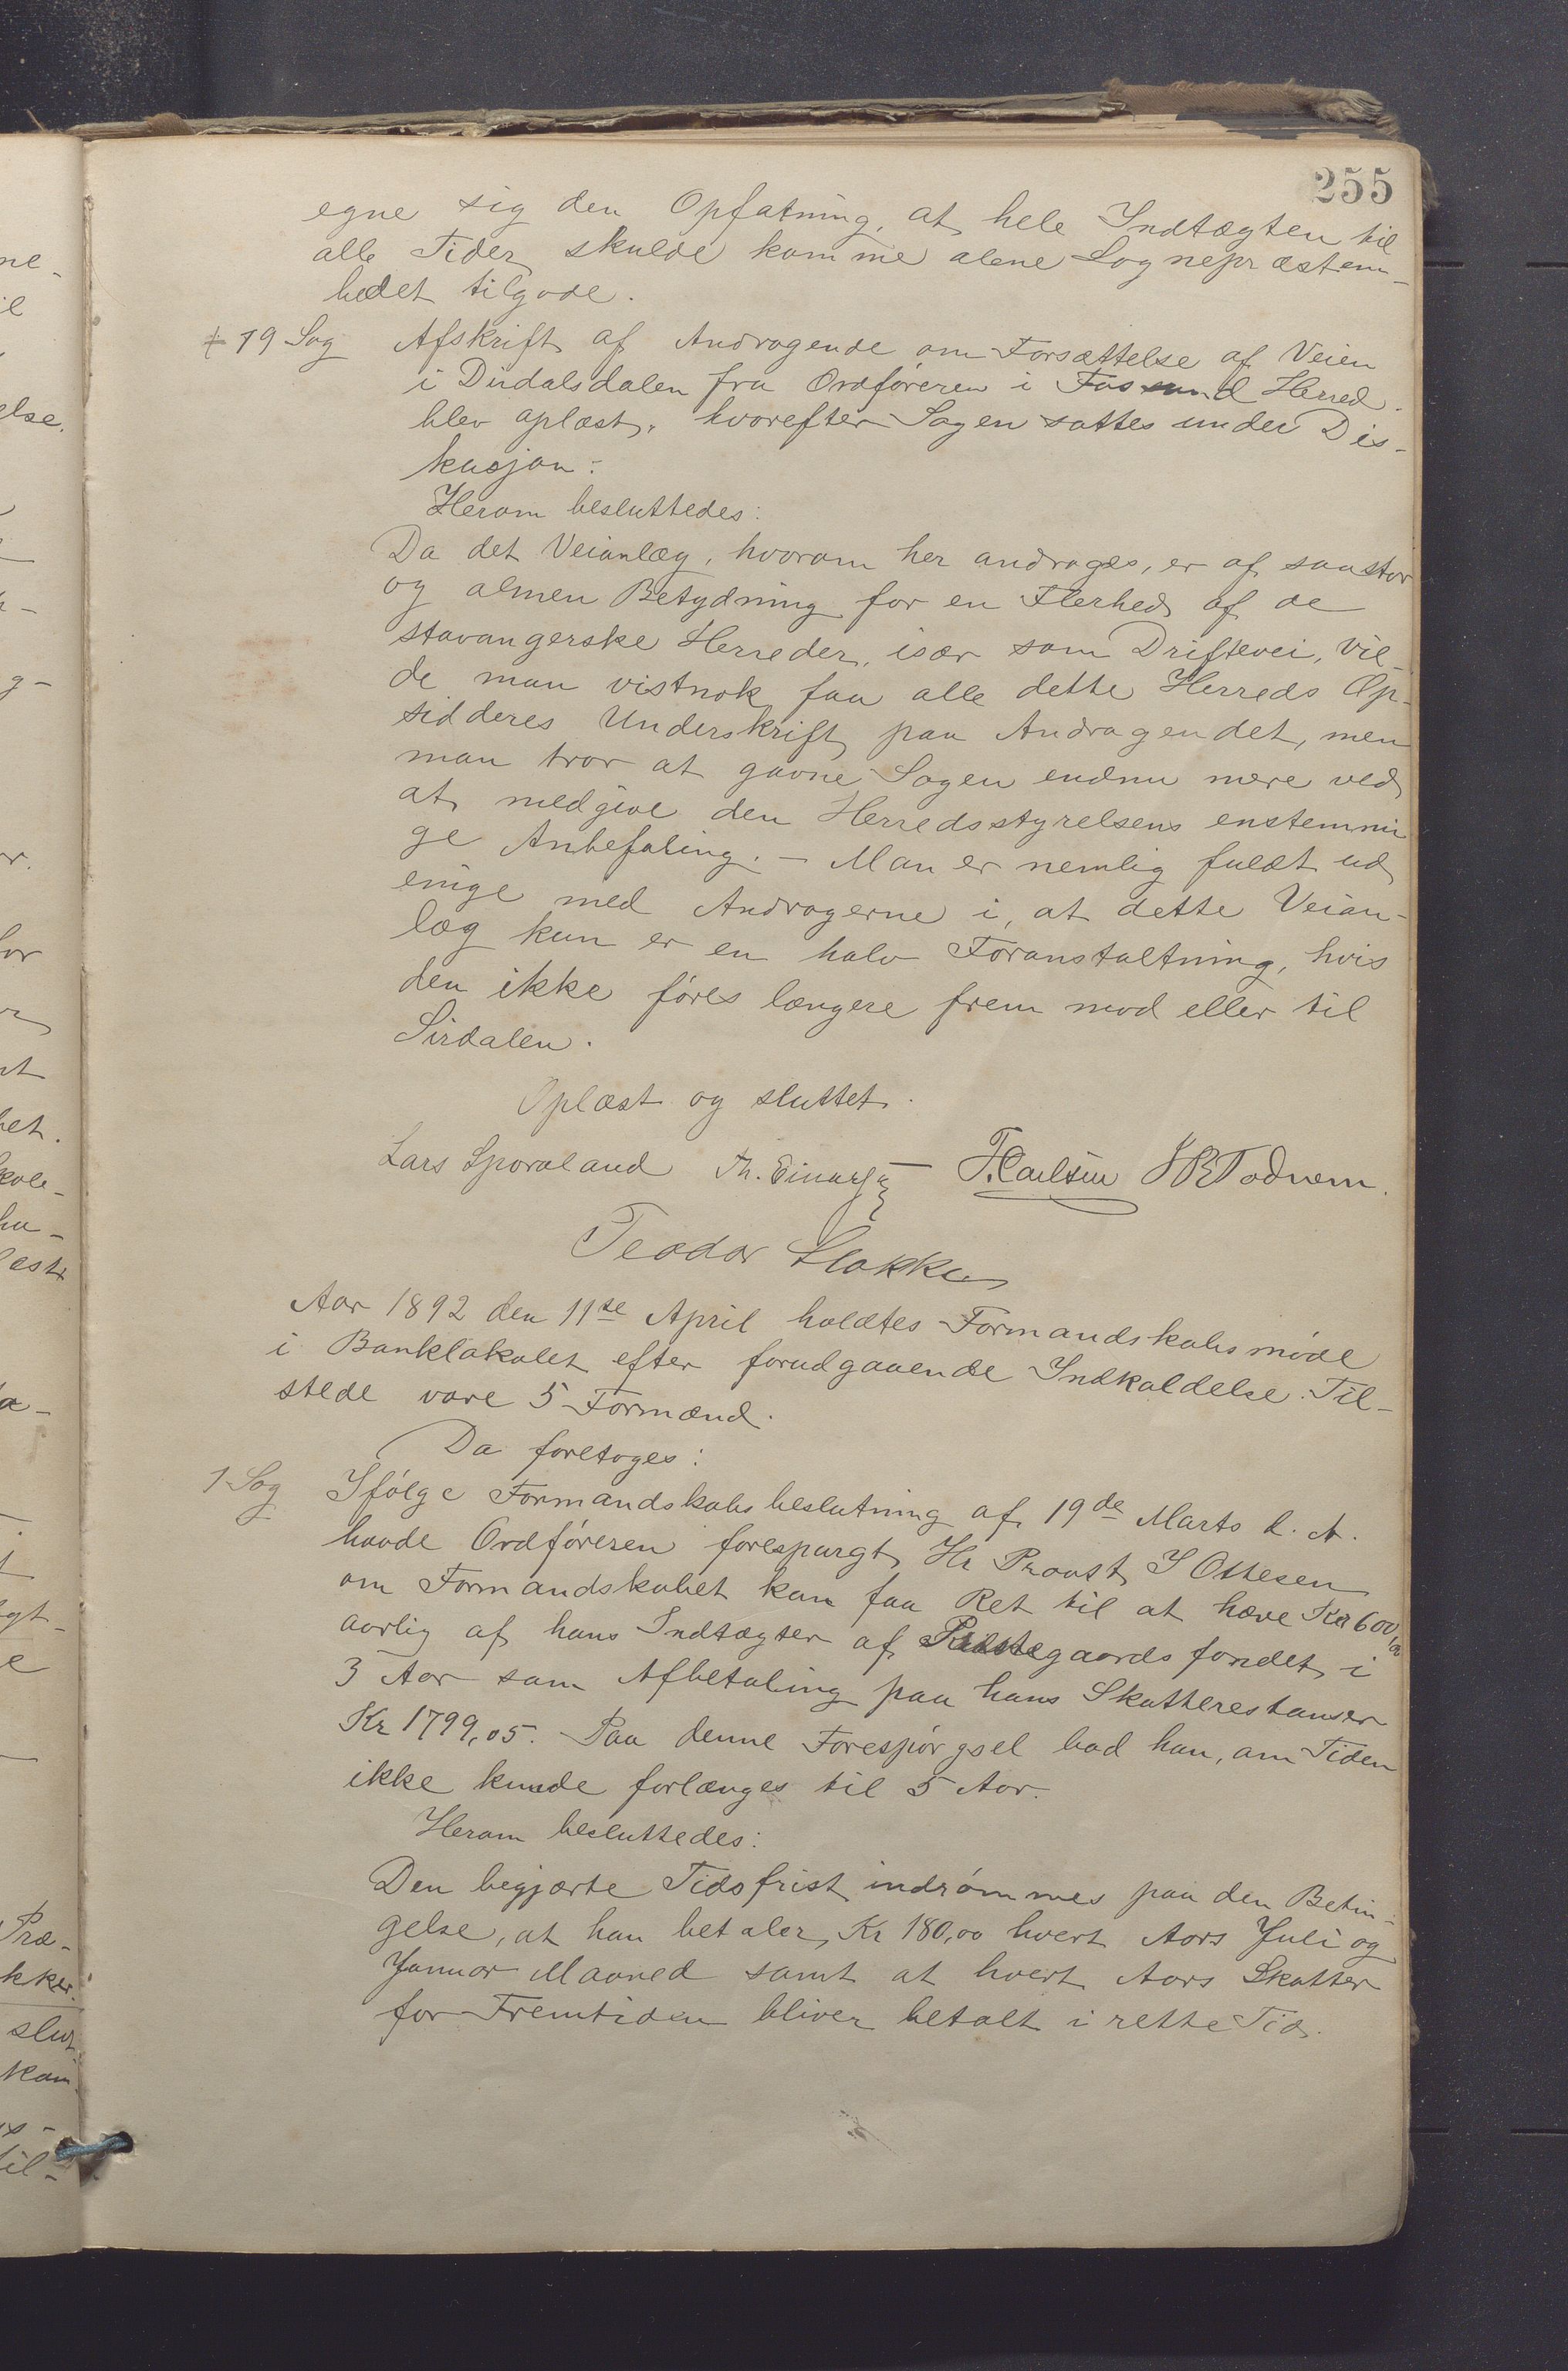 255
egne sig den Opfatning, at hele Indtægten til
alle Tider skulde komme alene Sognepræstem-
bedet tilgode.
19 Sag Afskrift af Andragende om Forsættelse af Veien
i Dirdalsdalen fra Ordføreren i Fossand Herred
blev oplæst, hvorefter Sagen sattes under Dis-
kusjon:
Herom besluttedes:
Da det Veianlæg, hvorom her andrages, er af saa stor
og almen Betydning for en Flerhed af de
stavangerske Herreder, især som Driftevei, vil-
de man vistnok faa alle dette Herreds Op-
sidderes Underskrift paa Andragendet, men
man tror at gavne Sagen endnu mere ved
at medgive den Herredsstyrelsens enstemmi
ge Anbefaling. – Man er nemlig fuldt ud
enige med Andragerne i, at dette Veian-
læg kun er en halv Foranstaltning, hvis
den ikke føres længere frem mod eller til
Sirdalen.
Oplæst og sluttet.
Lars Sporaland Th. Einarsen T. Carlsen Todnem.
Teodor Stokke
Aar 1892 den 11te April holdtes Formandskabsmøde
i Banklokalet efter forudgaaende Indkaldelse. Til-
stede vare 5 Formænd.
Da foretoges:
1 Sag Ifølge Formandskabsbeslutning af 19de Marts d. A.
havde Ordføreren forespurgt Hr Provst I Ottesen
om Formandskabet kan faa Ret til at hæve Kr 600,00
aarlig af hans Indtægter af Præstegaardsfondet i
3 Aar som Afbetaling paa hans Skatterestanser
Kr 1799,05. Paa denne Forespørgsel bad han, om Tiden
ikke kunde forlænges til 5 Aar.
Herom besluttedes:
Den begjærte Tidsfrist indrømmes paa den Betin-
gelse, at han betaler Kr 180,00 hvert Aars Juli og
Januar Maaned samt at hvert Aars Skatter
for Fremtiden bliver betalt i rette Tid.